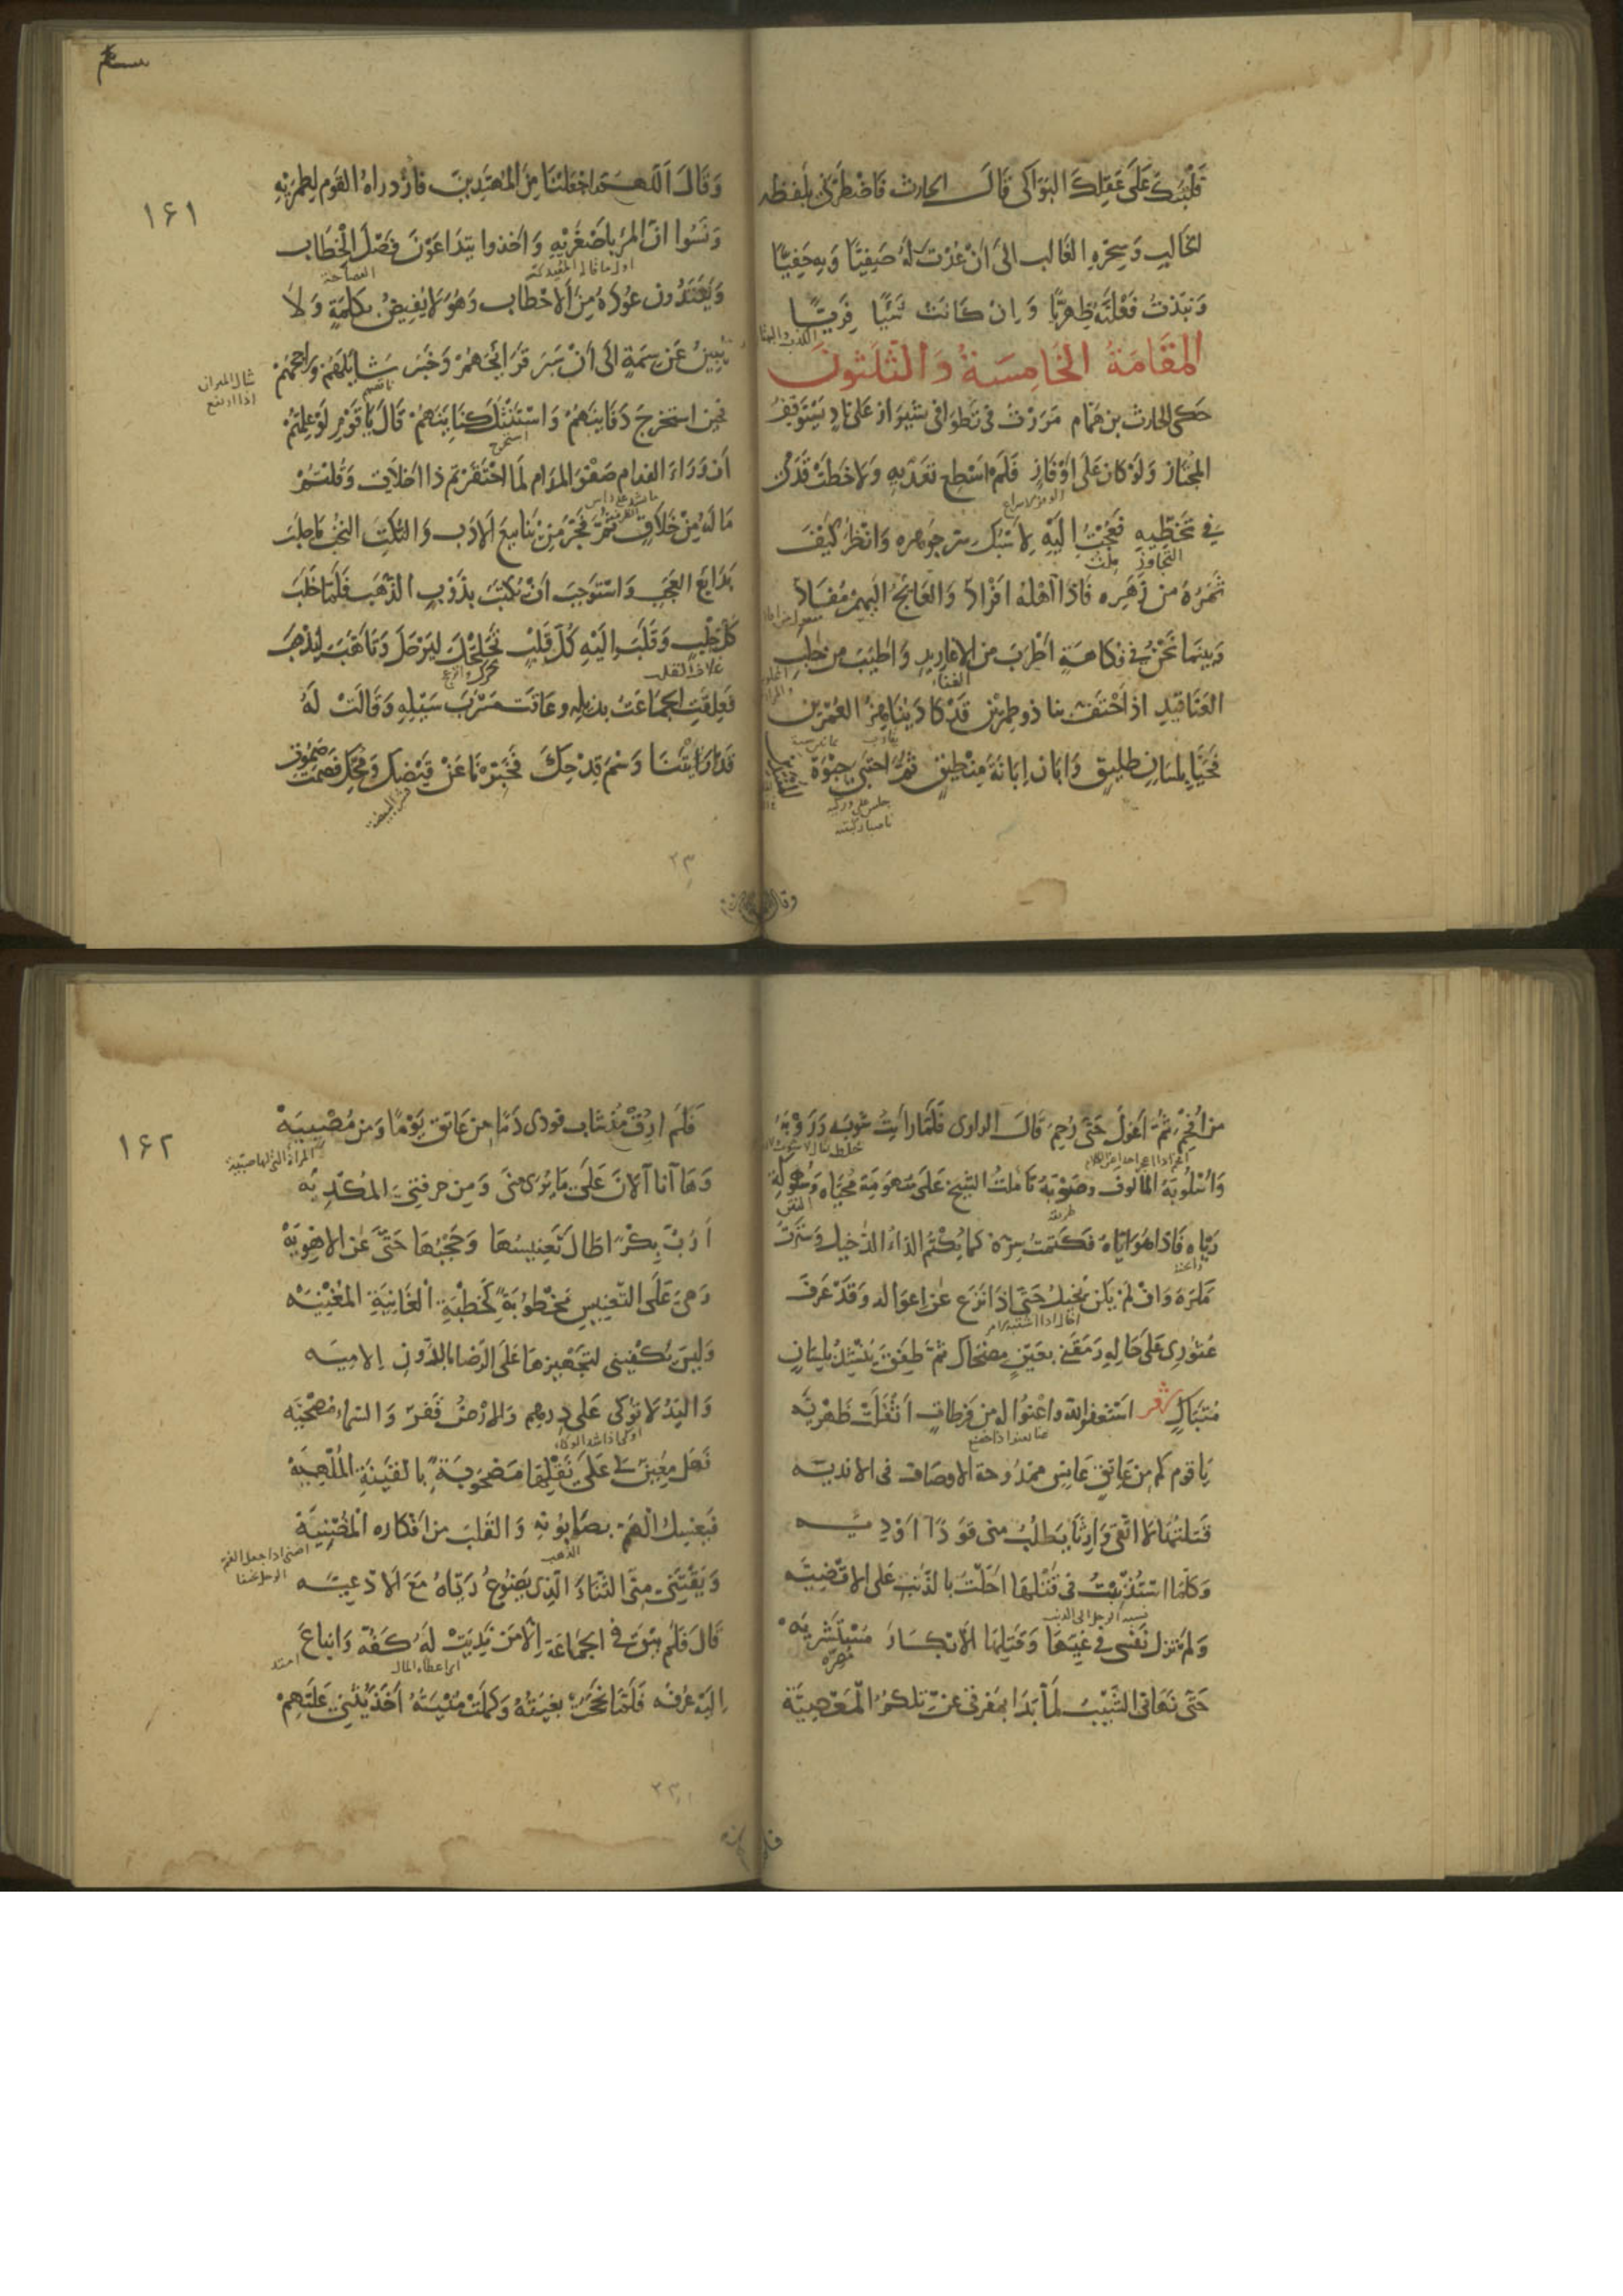 فَلْتَبْكِ عَلَى عَقْلِكَ البَوَاكي قَالَ الحارث فَاضْطَرَّني بلفظه
الخَالِبِ وَسِحْرِهِ الغَالب الى اَنْ عُدْتُ لَهُ صَفِيّا وَبِهِ حَفِيًّا
وَنَبَذْتُ فَعْلَتَهُ ظِهْرِيًّا وَاِنْ كَانَتْ شَيْئًا فَرِيًّا
المَقَامَةُ الخَامِسَةُ وَالثَّلَثُونَ
حَكَى الحارث بن همّام مَرَرْتُ في تَطْوَافي بشيرَاز عَلى نَادٍ يَسْتَوقِفُ
المُجْتَازَ وَلَوْ كَانَ عَلَى اَوْفَازٍ فَلَمْ اسْطِع تَعَدِّيهِ وَلَا خَطَتْ قَدَمي
فِي تَخَطِّيهِ فَعُجْتُ اِلَيْهِ لِاَسْبُكَ سِرَّ جَوهره وَانْظُرَ كَيْفَ
التجاوز ملت
ثَمَرُهُ من زَهَرِه فَاِذَا اَهْلُهُ اَفْرَادٌ وَالعَائِجُ اِلَيهِمْ مُفَادٌ
وَبَينَمَا نَحْنُ فِي فُكَاهَةٍ اَطْرَبَ من الاغاريدِ وَاَطيَبَ من حَلَبِ
الغناء
العَنَاقيدِ اذ احْتَفَّ بنا ذو طِمرَيْن قَدْ كَادَ يُنَاهِزُ العُمْرَين
فَحَيَّا بِلِسَانٍ طَلِيقٍ وَاَبَانَ اِبَانَةَ مِنْطِيقٍ ثُمَّ احْتَبَى حِبْوَةَ
جلس على وركيه
ناصبا ركبتيه
١۶١
وَقَالَ اَللّهُمَّ اجْعَلْنَا مِنَ المُهْتَدِينَ فَازْدَرَاهُ القَوم لِطِمْرَيْهِ
وَنَسُوا اَنَّ المَرْءَ بِاَصْغَرَيْهِ وَاَخَذوا يَتَدَاعَوْنَ فَصْلَ الْخِطَاب
وَيَعْتَدُّونَ عُودَهُ مِنَ الاَحْطَاب وَهُوَ لَا يُفِيضُ بكَلِمَةٍ وَلَا
يُبِينُ عَن سِمَةٍ الَى اَنْ سَبَرَ قَرَائِحَهُمْ وَخَبَرَ شَائِلَهُمْ وَرَاجِحَهُمْ
شال الميزان
اذا ارتفع
فَحِينَ استَخْرَجَ دَفَائِنَهُمْ وَاسْتَنْثَلَ كَنَائِنَهُمْ قَالَ يَا قَوْمِ لَوْ عَلِمْتُمْ
اَنَّ وَرَاءَ الفِدَام صَفْوَ المُدَام لَمَا احْتَقَرْتم ذا اَخْلَاقٍ وَقُلْتُمْ
مَا لَهُ مِنْ خَلَاقٍ ثُمَّ فَجَّرَ مِنْ يَنَابِيعِ الاَدَب وَالنُّكَتِ النُّخَبِ مَا جَلَبَ
بَدَائِعَ العَجَبِ وَاسْتَوجَبَ اَنْ يُكْتَبَ بذَوْبِ الذَّهَبِ فَلَمَّا خَلَبَ
كُلَّ خِلْبٍ وَقَلَّبَ اِلَيْهِ كُلَّ قَلْبٍ تَحَلْحَلَ لِيَرْحَلَ وَتَاَهَّبَ لِيَذْهَبَ
غلاف القلب
فَعَلِقَتِ الجمَاعَةُ بذيلِهِ وعَاقَت مَسْرَبَ سَيْلِهِ وَقَالَتْ لَهُ
قَدْ اَرَيْتَنَا وَسْمَ قِدْحِكَ فَخَبِّرْنَا عَنْ قَيْضِكَ وَمُحِّكَ فَصَمَتَ صُمُوتَ
قشر البيضة
مَن اُفْحِمَ ثُمَّ اَعْوَلَ حَتَّى رُحِمَ قَالَ الراوى فَلَمَّا رَاَيْتُ شَوبَه وَرَوْبَهُ
وَاُسْلُوبَهُ المَالُوفَ وصَوْبَهُ تَاَمَّلْتُ الشَّيْخَ عَلَى سُهُومَةِ مُحَيَّاه وَسُهُوكَةِ
طريقه
رَيَّاه فَاِذَا هُوَ اِيَّاهُ فكَتَمْتُ سِرَّهُ كَمَا يُكْتَمُ الدَّاءُ الدَّخيل وَسَتَرْتُ
مَكْرَهُ وَاِنْ لَمْ يَكُنْ يُخِيلُ حَتَّى اِذَا نَزَعَ عَنْ اِعوَاله وَقَدْ عَرَفَ
اخال اذا اشتبه الامر
عُثُورِى عَلَى حَالِهِ رَمَقَنِي بِعَيْنٍ مِضْحَاكٍ ثُمَّ طَفِقَ يُنْشِدُ بِلِسَانٍ
مُتَبَاكٍ شعر اَسْتَغفِرُ اللّهَ وَاَعْنُوا له من فَرَطَاتٍ اَثْقَلَتْ ظَهْرِيَه
عنا يعنوا اذا خضع
يَا قوم كَم مِن عَاتِقٍ عَانِسٍ ممدُوحَةِ الاوصَاف فى الانديَه
قَتَلْتُهَا لَا اَتَّقِي وَارِثًا يَطْلُبُ مِني قَوَدًا اَوْ دِيَه
وَكُلَّمَا اسْتُذْنِبْتُ فى قَتْلِهَا اَحَلْتُ بالذَّنْبِ عَلى الاَقْضِيَه
وَلَمْ تَزَل نَفْسى فى غَيِّهَا وَقَتْلِهَا الاَبْكَارَ مُسْتَشْرِيَه
حَتَّى نَهَانى الشَّيْبُ لَمَّا بَدَا بمَفرِقي عَنْ تِلكُمُ المَعْصِيَة
١۶٢
فَلَم اُرِقْ مُذْ شَابَ فودى دَمًا من عَاتِقٍ يَوْمًا وَمِن مُصْبِيَهْ
المراة التى لها صبية
وَهَا اَنا اَلآنَ عَلَى مَا يُرَى مِنِّي وَمِن حِرفَتِيَ المُكْدِيَه
اَرُبُّ بِكْرًا طَالَ تَعْنِيسُهَا وَحَجْبُهَا حَتَّى عَنِ الاَهْوِيَهْ
وَهيَ عَلَى التَّعْنِيسِ مَخْطُوبَةٌ كَخِطْبَةِ الْغَانِيَةِ المُغْنِيَه
وَلَيسَ يَكْفِينى لتَجْهِيزهَا عَلَى الرِّضَا بالدُّونِ اِلا مِيَه
وَاليَدُ لَا تُوكَى عَلَى درهم وَالاَرْضُ قَفْرٌ وَالسَّمَاءُ مُصْحِيَه
اوكى اذا شد الوكاء
فَهَل مُعِينٌ لى عَلَى نَقْلِهَا مَصْحُوبَةً بالقَيْنَةِ المُلْهِيَه
فَيَغْسِلَ الْهَمَّ بصَابُونِهِ وَالقَلبَ مِن اَفْكَاره الْمُضْنِيَة
الذهب
وَيَقْتَنى مِنِّى الثَّنَاءَ الَّذِى يَضُوعُ رَيَّاهُ مَعَ الاَدْعِيَه
قَالَ فَلَمْ يَبْقَ فى الجمَاعَة اِلَّا مَن نَدِيَتْ لَهُ كَفُّهُ وَانبَاعَ
امتد
اِلَيْهِ عُرْفُه فَلَمَّا نَجَحَتْ بُغْيَتُهُ وَكَمَلَتْ مُنْيَتُهُ اَخَذَ يُثْنِي عَلَيْهِمْ